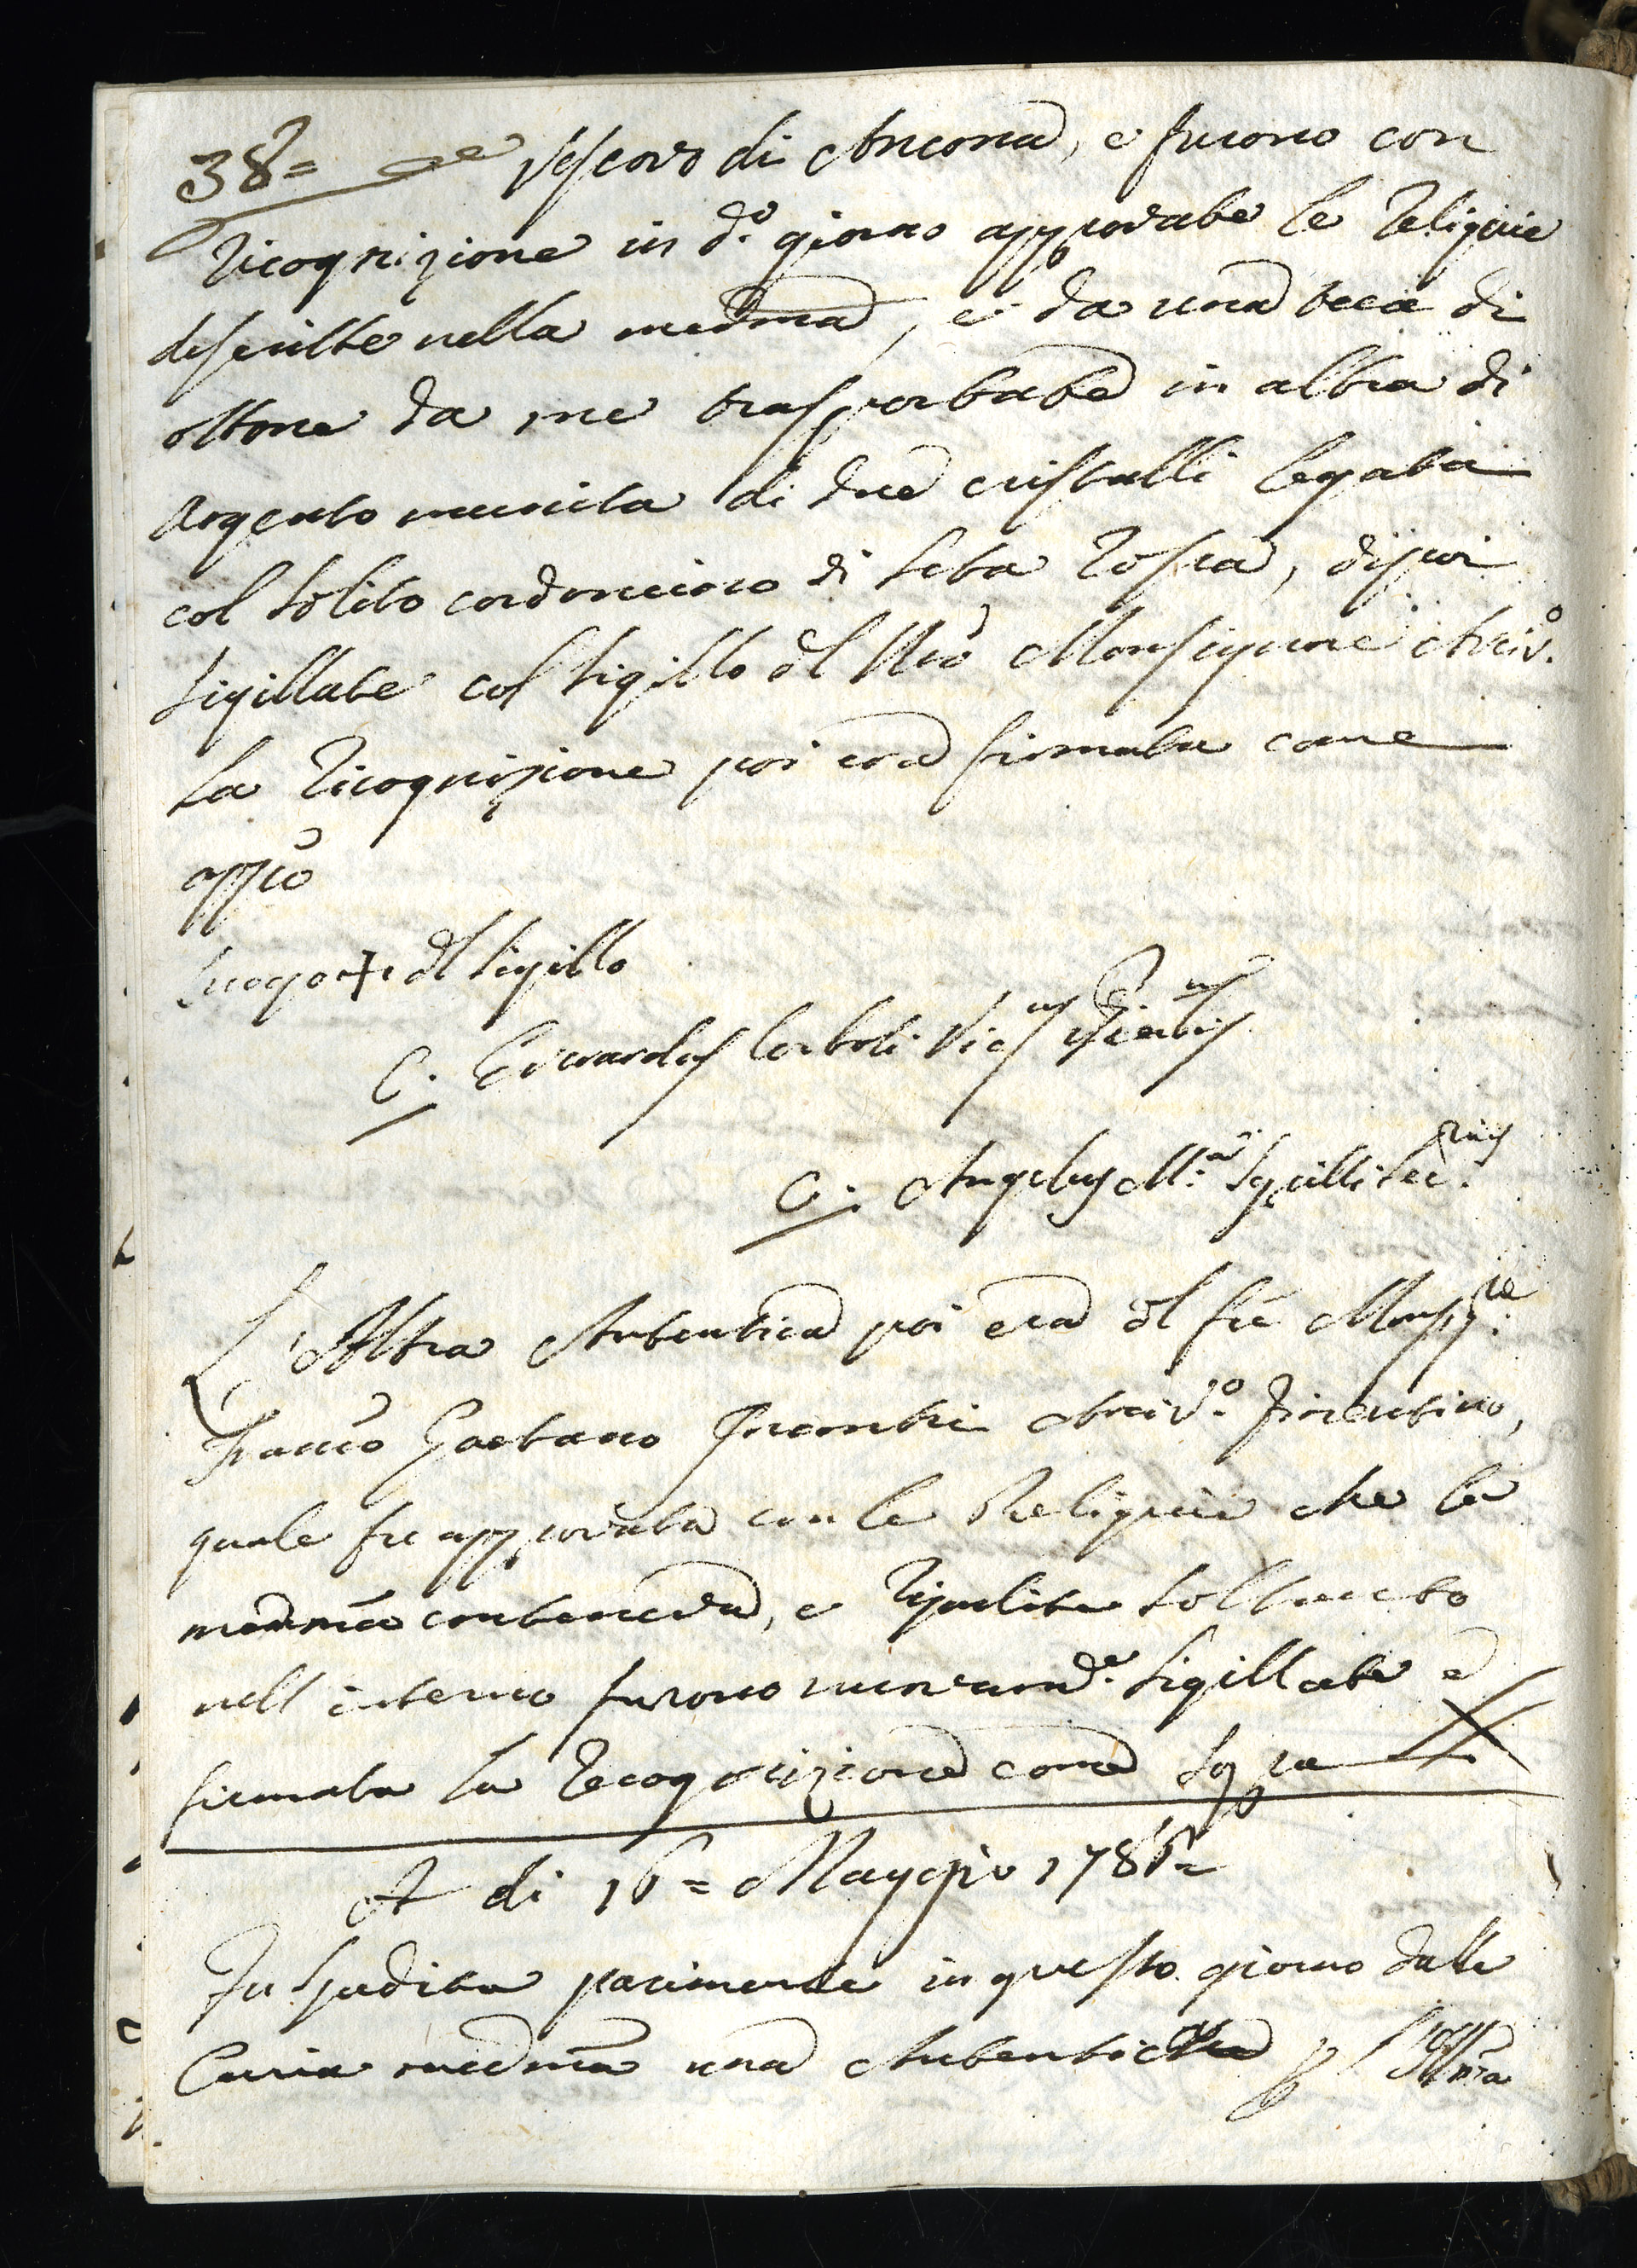 38= Vescovo di Ancona, e furono con
ricognizione in d.o giorno approvate le Reliquie
descritte nella medma, e da una teca di
ottone da me trasportate in altra di
Argento munita di due cristalli legata
col solito cordoncino di seta rossa, dipoi
sigillate col sigillo dl Nro Monsignore Arciv.o
La ricognizione poi era firmata come
appio
Luogo + dl Sigillo
C. Corboli Vic.us
C. Angelus M.a Squilli
L'Altra Autentica poi era dl fu Monsig.re
Franco Gaetano Incontri Arciv.o Fiorentino,
quale fu approvata con le Reliquie che la
medma conteneva, e ripulite soltanto
nell interno furono nuovamd.e sigillate e
firmata la recognizione come sopra
A di 16= Maggio 1786=
Fu spedita parimente in questo giorno dalla
Curia medma una Autentica p